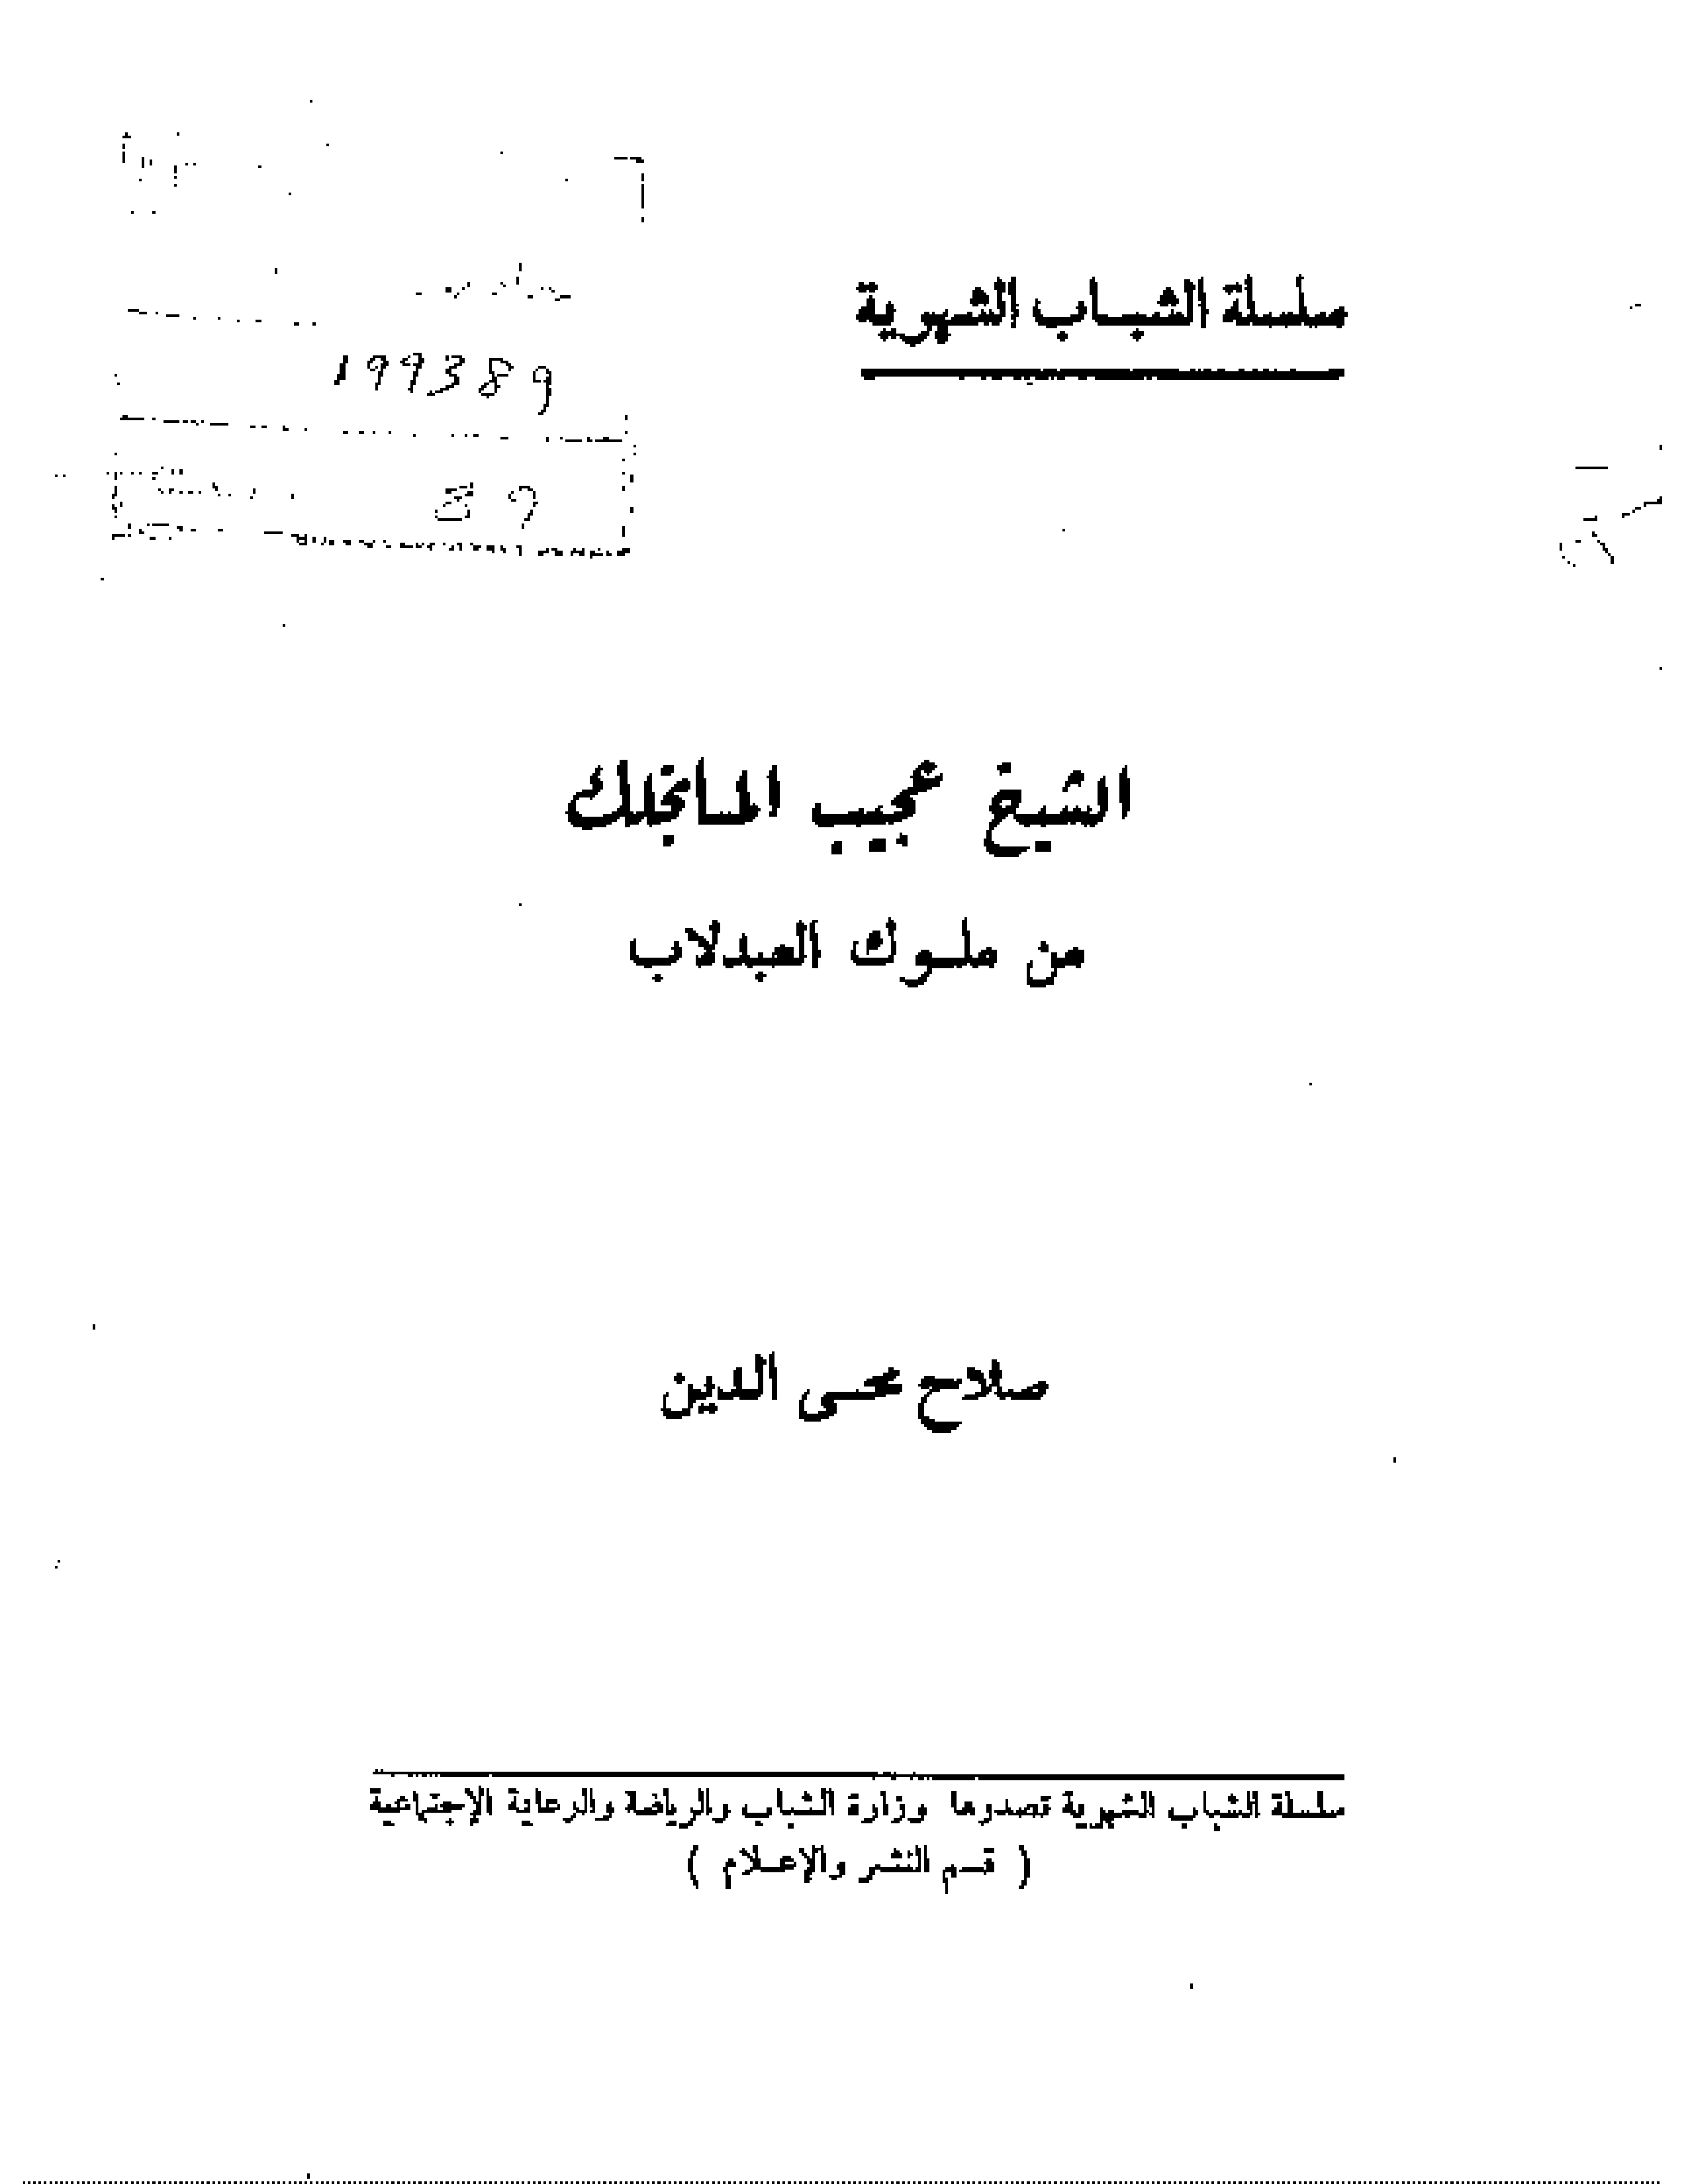 سلسلة الشباب الشهرية
199389
89
الشيخ عجيب المانجلك
من ملوك العبدلاب
صلاح محى الدين
سلسلة الشباب الشهرية تصدرها وزارة الشباب والرياضة والرعاية الإجتماعية
( قسم النشر والإعلام )